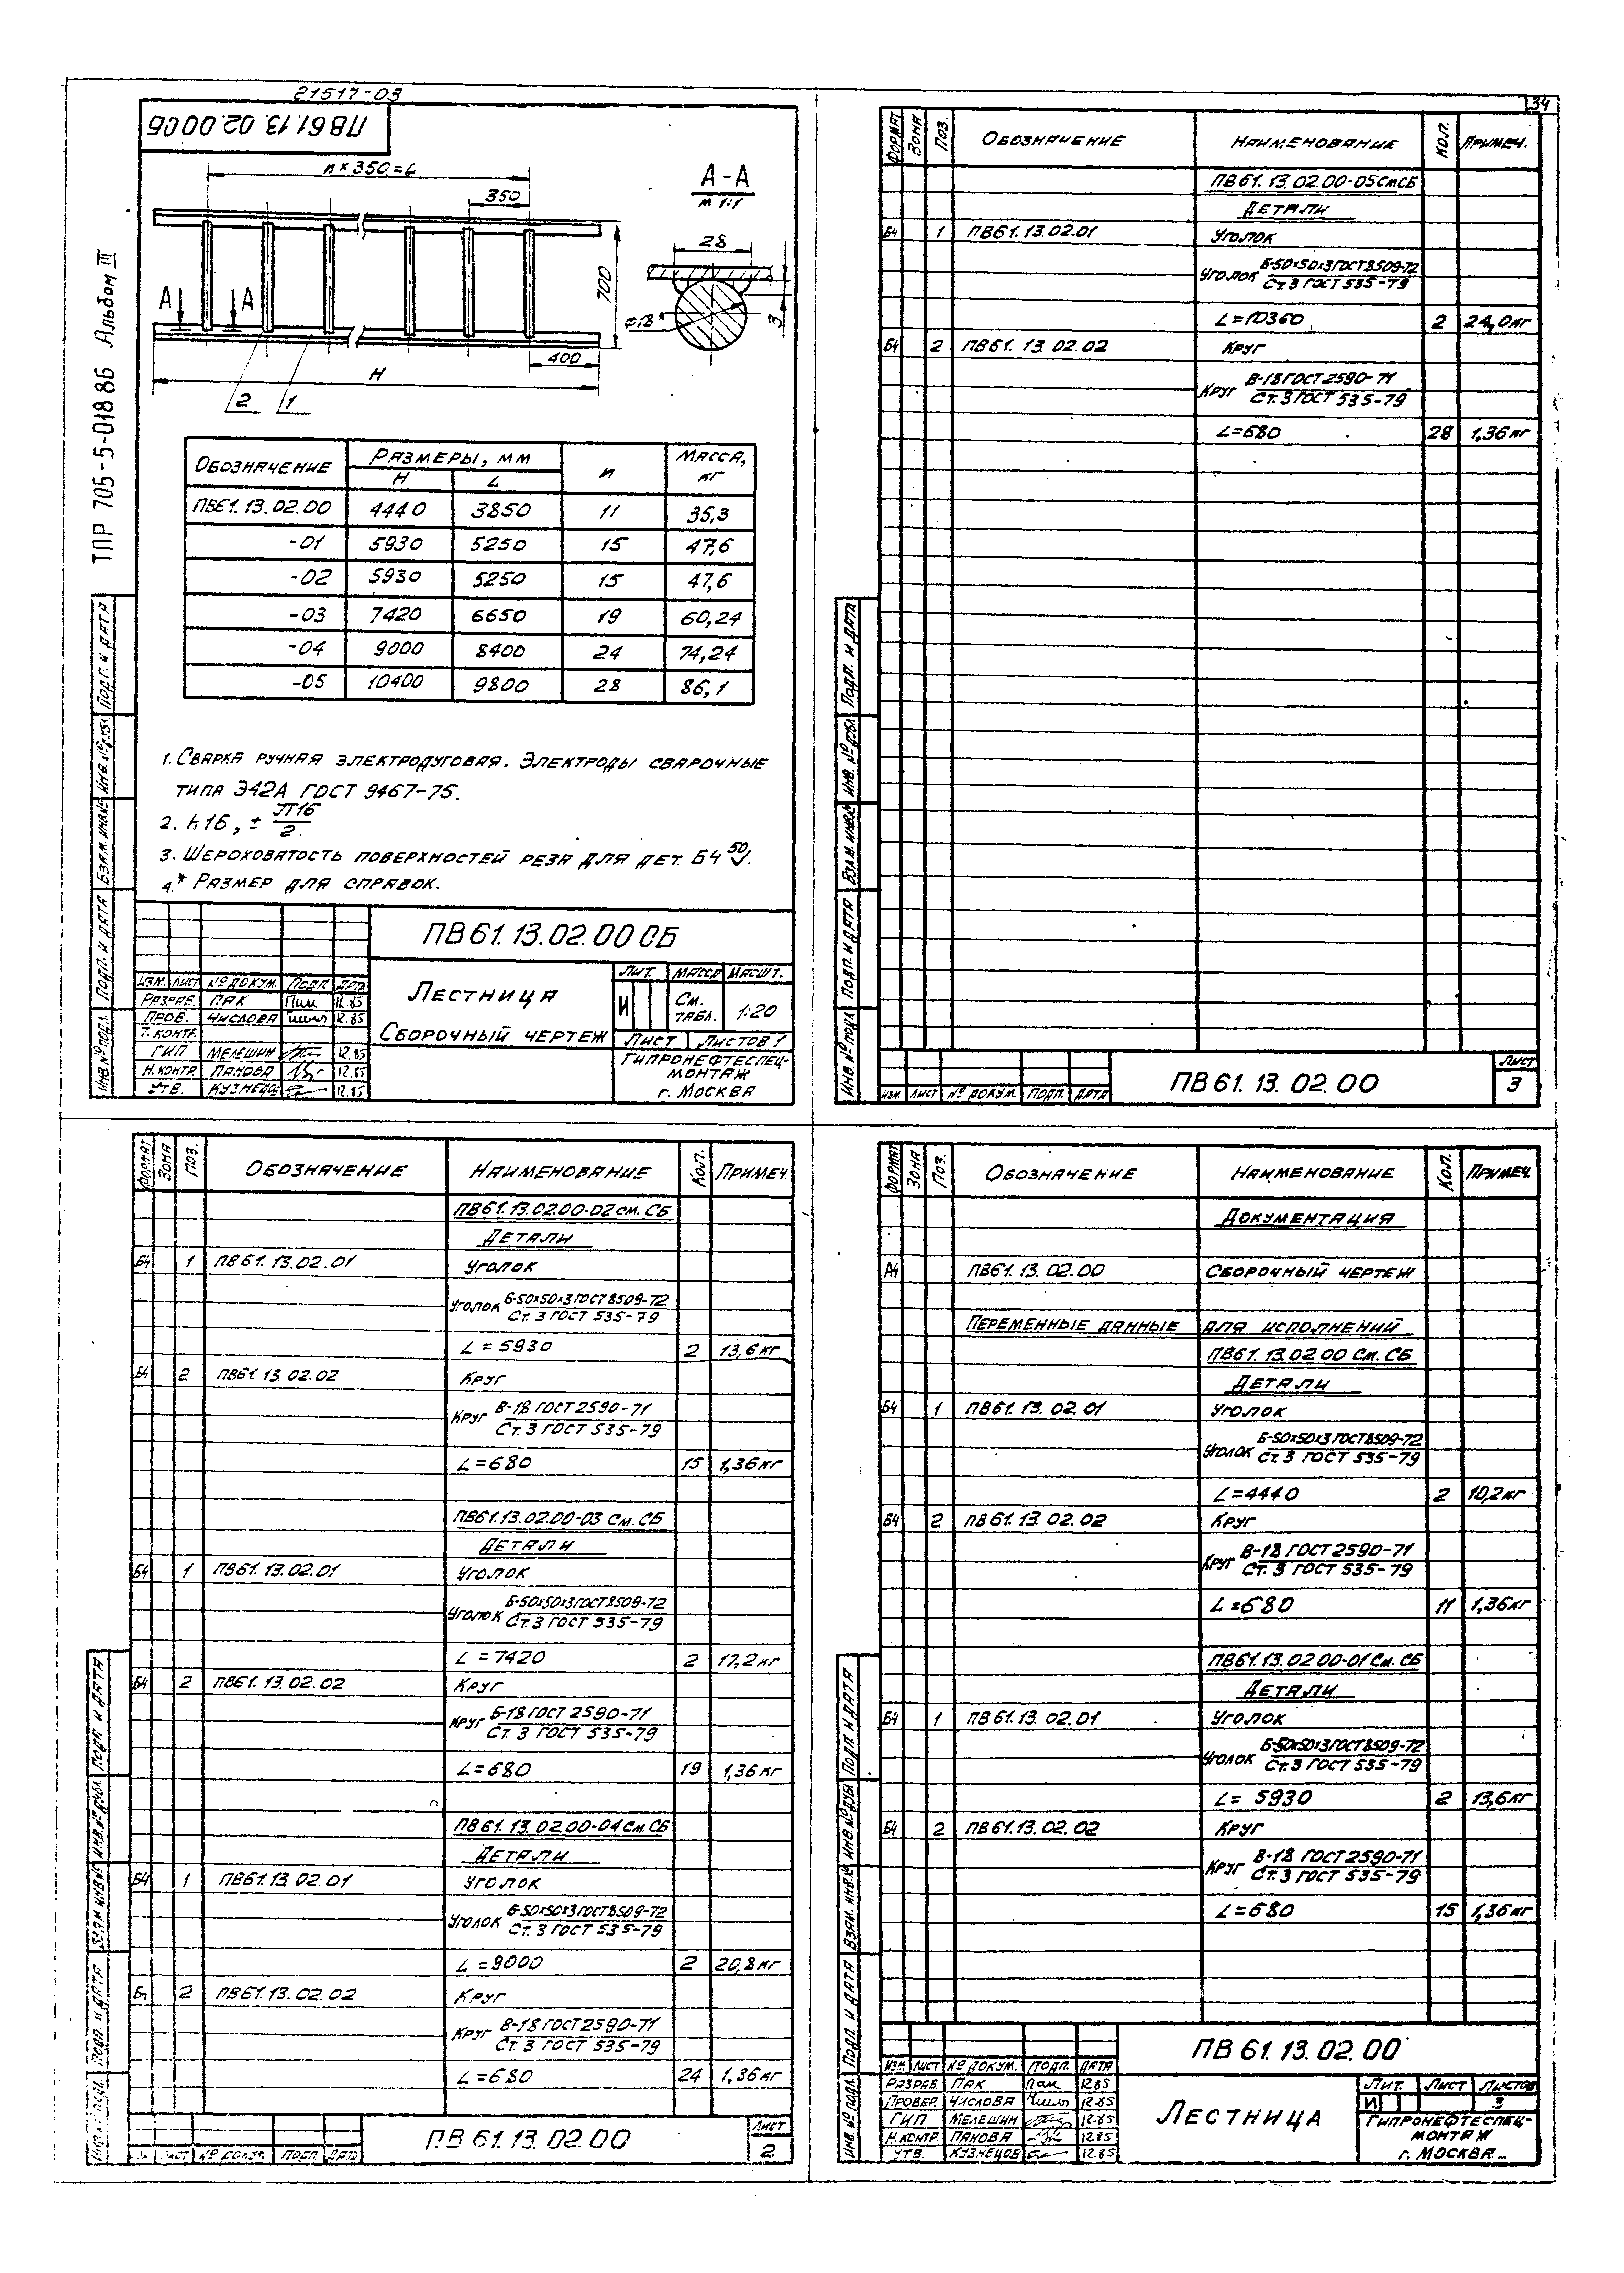 21517-03
34
ПВ61.13.02.00СБ
ТПР 705-5-0188б Альбом III
n×350=L
350
А
А
700
400
H
2
1
А-А
М 1:1
28
3
Обозначение
Размеры, мм
n
Масса, кг
H
L
ПВ61.13.02.00 4440 3850 11 35,3
-01 5930 5250 15 47,6
-02 5930 5250 15 47,6
-03 7420 6650 19 60,24
-04 9000 8400 24 74,24
-05 10400 9800 28 86,1
1. Сварка ручная электродуговая. Электроды сварочные
типа Э42А ГОСТ 9467-75.
2. h16, ± JT16/2.
3. Шероховатость поверхностей реза для дет. Б4 50.
4.* Размер для справок.
ПВ61.13.02.00СБ
Изм. Лист № докум. Подп. Дата
Разраб. Пак Пак 12.85
Пров. Числова 12.85
Т. контр.
ГИП Мелешин 12.85
Н.контр. Панова 12.85
Утв. Кузнецов 12.85
Лестница
Сборочный чертеж
Лит. Масса Масшт.
И См. табл. 1:20
Лист Листов 1
Гипронефтеспец-
монтаж
г. Москва
Подп. и дата
Взам. инв.№
Подп. и дата
Инв. № подл.
Формат Зона Поз. Обозначение Наименование Кол. Примеч.
ПВ61.13.02.00-05 см СБ
Детали
Б4 1 ПВ61.13.02.01 Уголок
Уголок Б-50×50×3 ГОСТ 8509-72
Ст.3 ГОСТ 535-79
L=10360 2 24,0кг
Б4 2 ПВ61.13.02.02 Круг
Круг В-18 ГОСТ 2590-71
Ст.3 ГОСТ 535-79
L=680 28 1,36кг
Подп. и дата
Инв. № дубл.
Взам. инв.№
Подп. и дата
Инв. № подл.
Изм. Лист № докум. Подп. Дата
ПВ61.13.02.00
Лист
3
Формат Зона Поз. Обозначение Наименование Кол. Примеч.
ПВ61.13.02.00-02 см. СБ
Детали
Б4 1 ПВ61.13.02.01 Уголок
Уголок Б-50×50×3 ГОСТ 8509-72
Ст.3 ГОСТ 535-79
L=5930 2 13,6кг
Б4 2 ПВ61.13.02.02 Круг
Круг В-18 ГОСТ 2590-71
Ст.3 ГОСТ 535-79
L=680 15 1,36кг
ПВ61.13.02.00-03 См. СБ
Детали
Б4 1 ПВ61.13.02.01 Уголок
Уголок Б-50×50×3 ГОСТ 8509-72
Ст.3 ГОСТ 535-79
L=7420 2 17,2кг
Б4 2 ПВ61.13.02.02 Круг
Круг Б-18 ГОСТ 2590-71
Ст.3 ГОСТ 535-79
L=680 19 1,36кг
ПВ61.13.02.00-04 См. СБ
Детали
Б4 1 ПВ61.13.02.01 Уголок
Уголок Б-50×50×3 ГОСТ 8509-72
Ст.3 ГОСТ 535-79
L=9000 2 20,8кг
Б4 2 ПВ61.13.02.02 Круг
Круг В-18 ГОСТ 2590-71
Ст.3 ГОСТ 535-79
L=680 24 1,36кг
Подп. и дата
Инв. № дубл.
Взам инв.№
Подп. и дата
Лист № докум. Подп. Дата
ПВ61.13.02.00
Лист
2
Формат Зона Поз. Обозначение Наименование Кол. Примеч.
Документация
А4 ПВ61.13.02.00 Сборочный чертеж
Переменные данные для исполнений
ПВ61.13.02.00 См. СБ
Детали
Б4 1 ПВ61.13.02.01 Уголок
Уголок Б-50×50×3 ГОСТ 8509-72
Ст.3 ГОСТ 535-79
L=4440 2 10,2кг
Б4 2 ПВ61.13.02.02 Круг
Круг В-18 ГОСТ 2590-71
Ст.3 ГОСТ 535-79
L=680 11 1,36кг
ПВ61.13.02.00-01 См. СБ
Детали
Б4 1 ПВ61.13.02.01 Уголок
Уголок Б-50×50×3 ГОСТ 8509-72
Ст.3 ГОСТ 535-79
L=5930 2 13,6кг
Б4 2 ПВ61.13.02.02 Круг
Круг В-18 ГОСТ 2590-71
Ст.3 ГОСТ 535-79
L=680 15 1,36кг
Подп. и дата
Инв. № дубл
Взам. инв.№
Подп. и дата
Инв. № подл.
ПВ61.13.02.00
Изм Лист № докум. Подп. Дата
Разраб. Пак Пак 12.85
Провер. Числова 12.85
ГИП Мелешин 12.85
Н.контр. Панова 12.85
Утв. Кузнецов 12.85
Лестница
Лит. Лист Листов
И 3
Гипронефтеспец-
монтаж
г. Москва